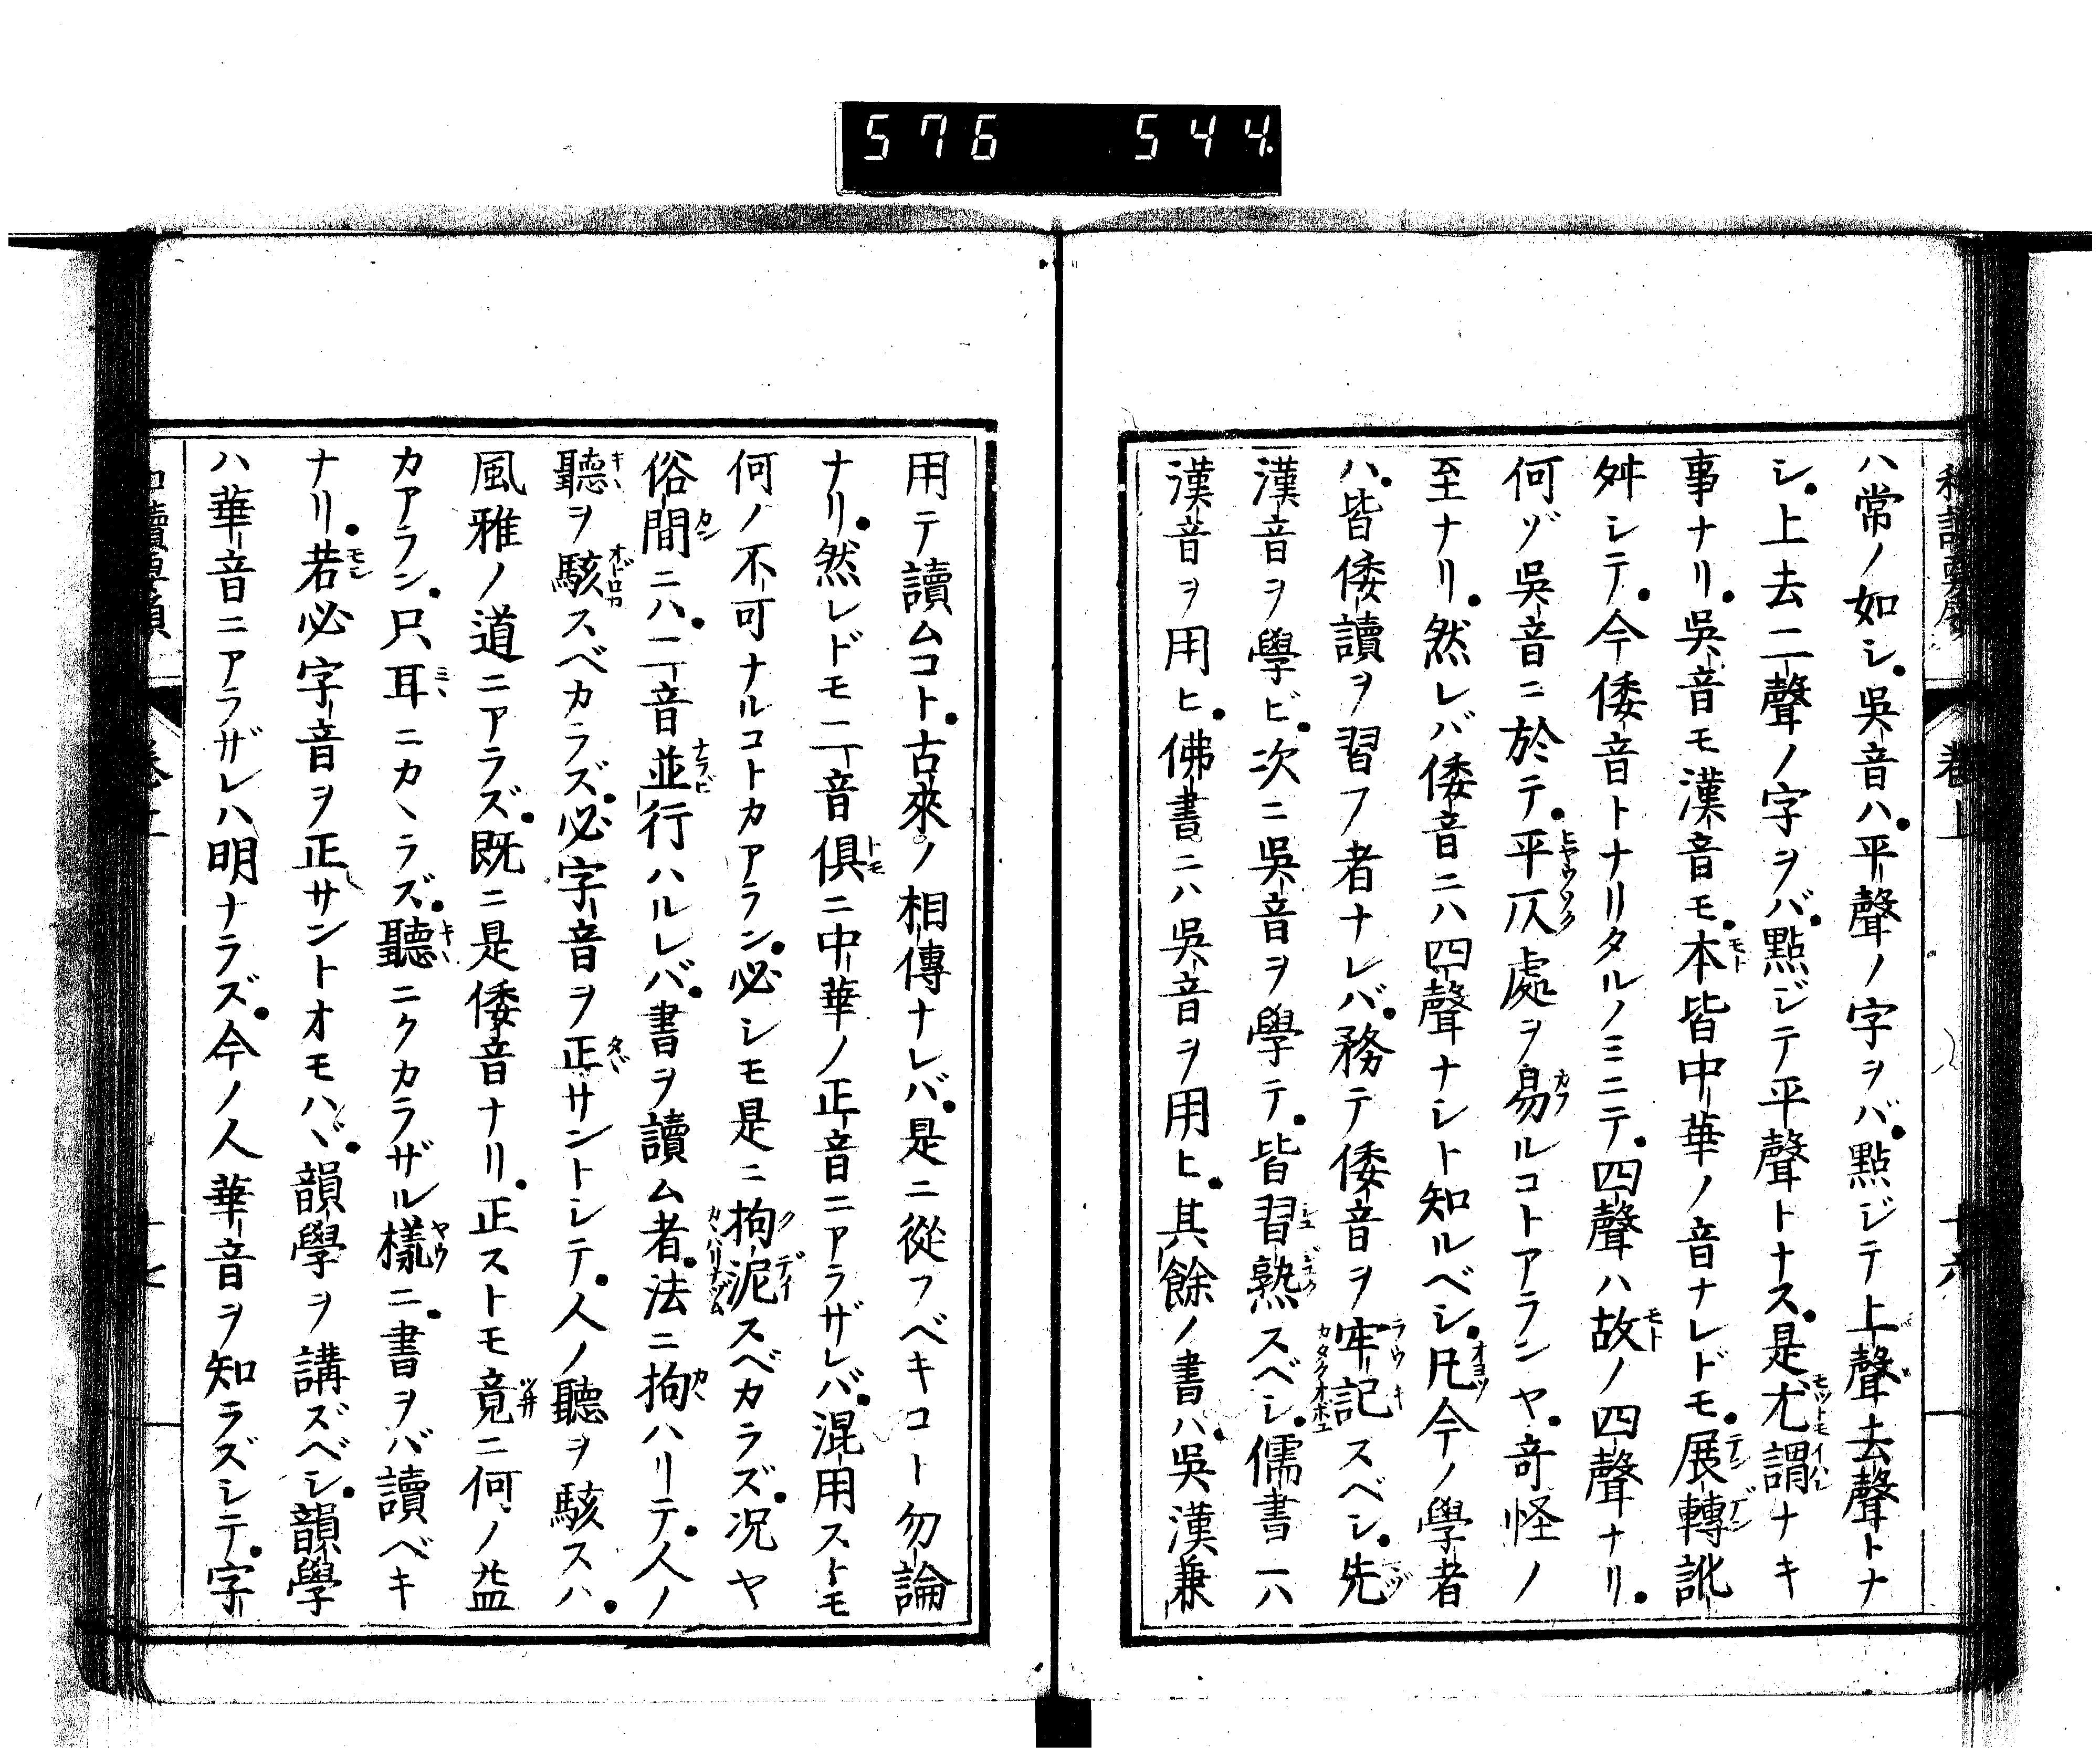 576 544
ハ常ノ如シ。吳音ハ。平聲ノ字ヲバ。點ジテ上聲去聲トナ
シ。上去二聲ノ字ヲバ。點ジテ平聲トナス。是尤謂ナキ
事ナリ。吳音モ漢音モ。本皆中華ノ音ナレドモ。展轉訛
舛シテ。今倭音トナリタルノミニテ。四聲ハ故ノ四聲ナリ。
何ゾ吳音ニ於テ。平仄處ヲ易ルコトアランヤ。奇怪ノ
至ナリ。然レバ倭音ニハ四聲ナシト知ルベシ。凡今ノ學者
ハ。皆倭讀ヲ習フ者ナレバ。務テ倭音ヲ牢記スベシ。先
漢音ヲ學ビ。次ニ吳音ヲ學テ。皆習熟スベシ。儒書ニハ
漢音ヲ用ヒ。佛書ニハ吳音ヲ用ヒ。其餘ノ書ハ。吳漢兼
巻上
用テ讀ムコト。古來ノ相傳ナレバ。是ニ從フベキコト勿論
ナリ。然レドモ二音俱ニ中華ノ正音ニアラザレバ。混用ストモ
何ノ不可ナルコトカアラン。必シモ是ニ拘泥スベカラズ。况ヤ
俗間ニハ。二音並行ハルレバ。書ヲ讀ム者。法ニ拘ハリテ。人ノ
聽ヲ駭スベカラズ。必字音ヲ正サントシテ。人ノ聽ヲ駭スハ。
風雅ノ道ニアラズ。既ニ是倭音ナリ。正ストモ竟ニ何ノ益
カアラン。只耳ニカヽラズ。聽ニクカラザル樣ニ。書ヲバ讀ベキ
ナリ。若必字音ヲ正サントオモハヾ。韻學ヲ講ズベシ。韻學
ハ華音ニアラザレハ明ナラズ。今ノ人華音ヲ知ラズシテ。字